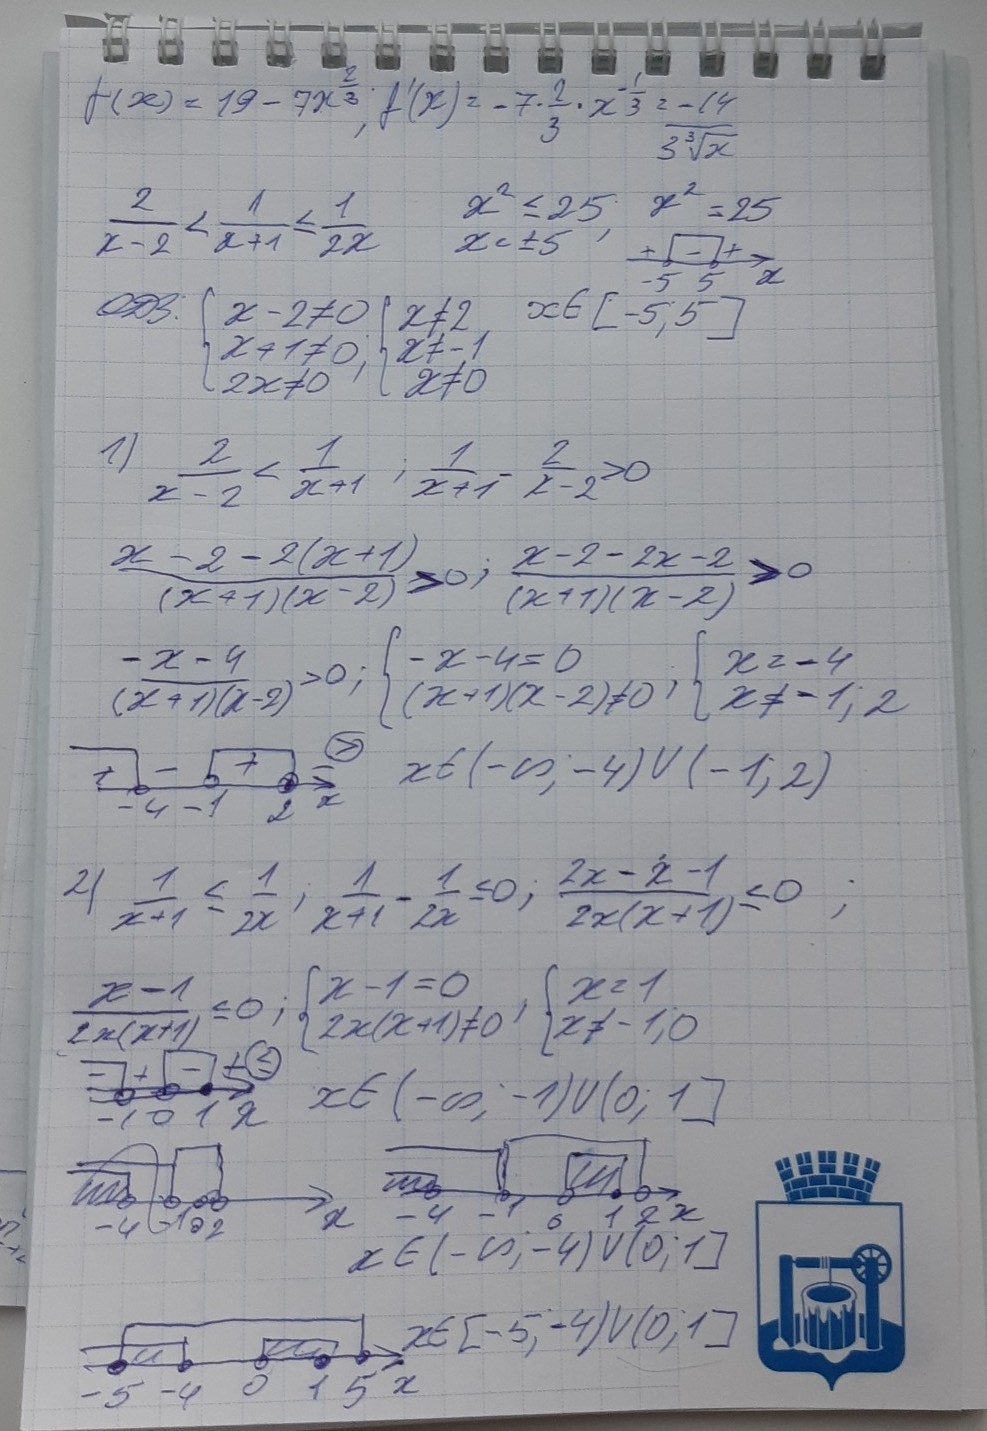 f(x) = 19 - 7x^(2/3); f'(x) = -7·2/3·x^(-1/3) = -14/(3∛x)
2/(x-2) < 1/(x+1) ≤ 1/(2x)   x² ≤ 25; x² = 25
x = ±5   + - +   -5 5 x
ОДЗ: { x-2≠0; x+1≠0; 2x≠0; { x≠2, x≠-1, x≠0   x∈[-5;5]
1) 2/(x-2) < 1/(x+1); 1/(x+1) - 2/(x-2) > 0
(x-2-2(x+1))/((x+1)(x-2)) > 0; (x-2-2x-2)/((x+1)(x-2)) > 0
(-x-4)/((x+1)(x-2)) > 0; { -x-4=0, (x+1)(x-2)≠0; { x=-4, x≠-1;2
+ - + - >   x∈(-∞;-4)∪(-1;2)
-4 -1 2 x
2) 1/(x+1) ≤ 1/(2x); 1/(x+1) - 1/(2x) ≤ 0; (2x-x-1)/(2x(x+1)) ≤ 0;
(x-1)/(2x(x+1)) ≤ 0; { x-1=0, 2x(x+1)≠0; { x=1, x≠-1;0
- + - + ≤   x∈(-∞;-1)∪(0;1]
-1 0 1 x
-4 -1 2 x   -4 -1 0 1 2 x
x∈(-∞;-4)∪(0;1]
x∈[-5;-4)∪(0;1]
-5 -4 0 1 5 x